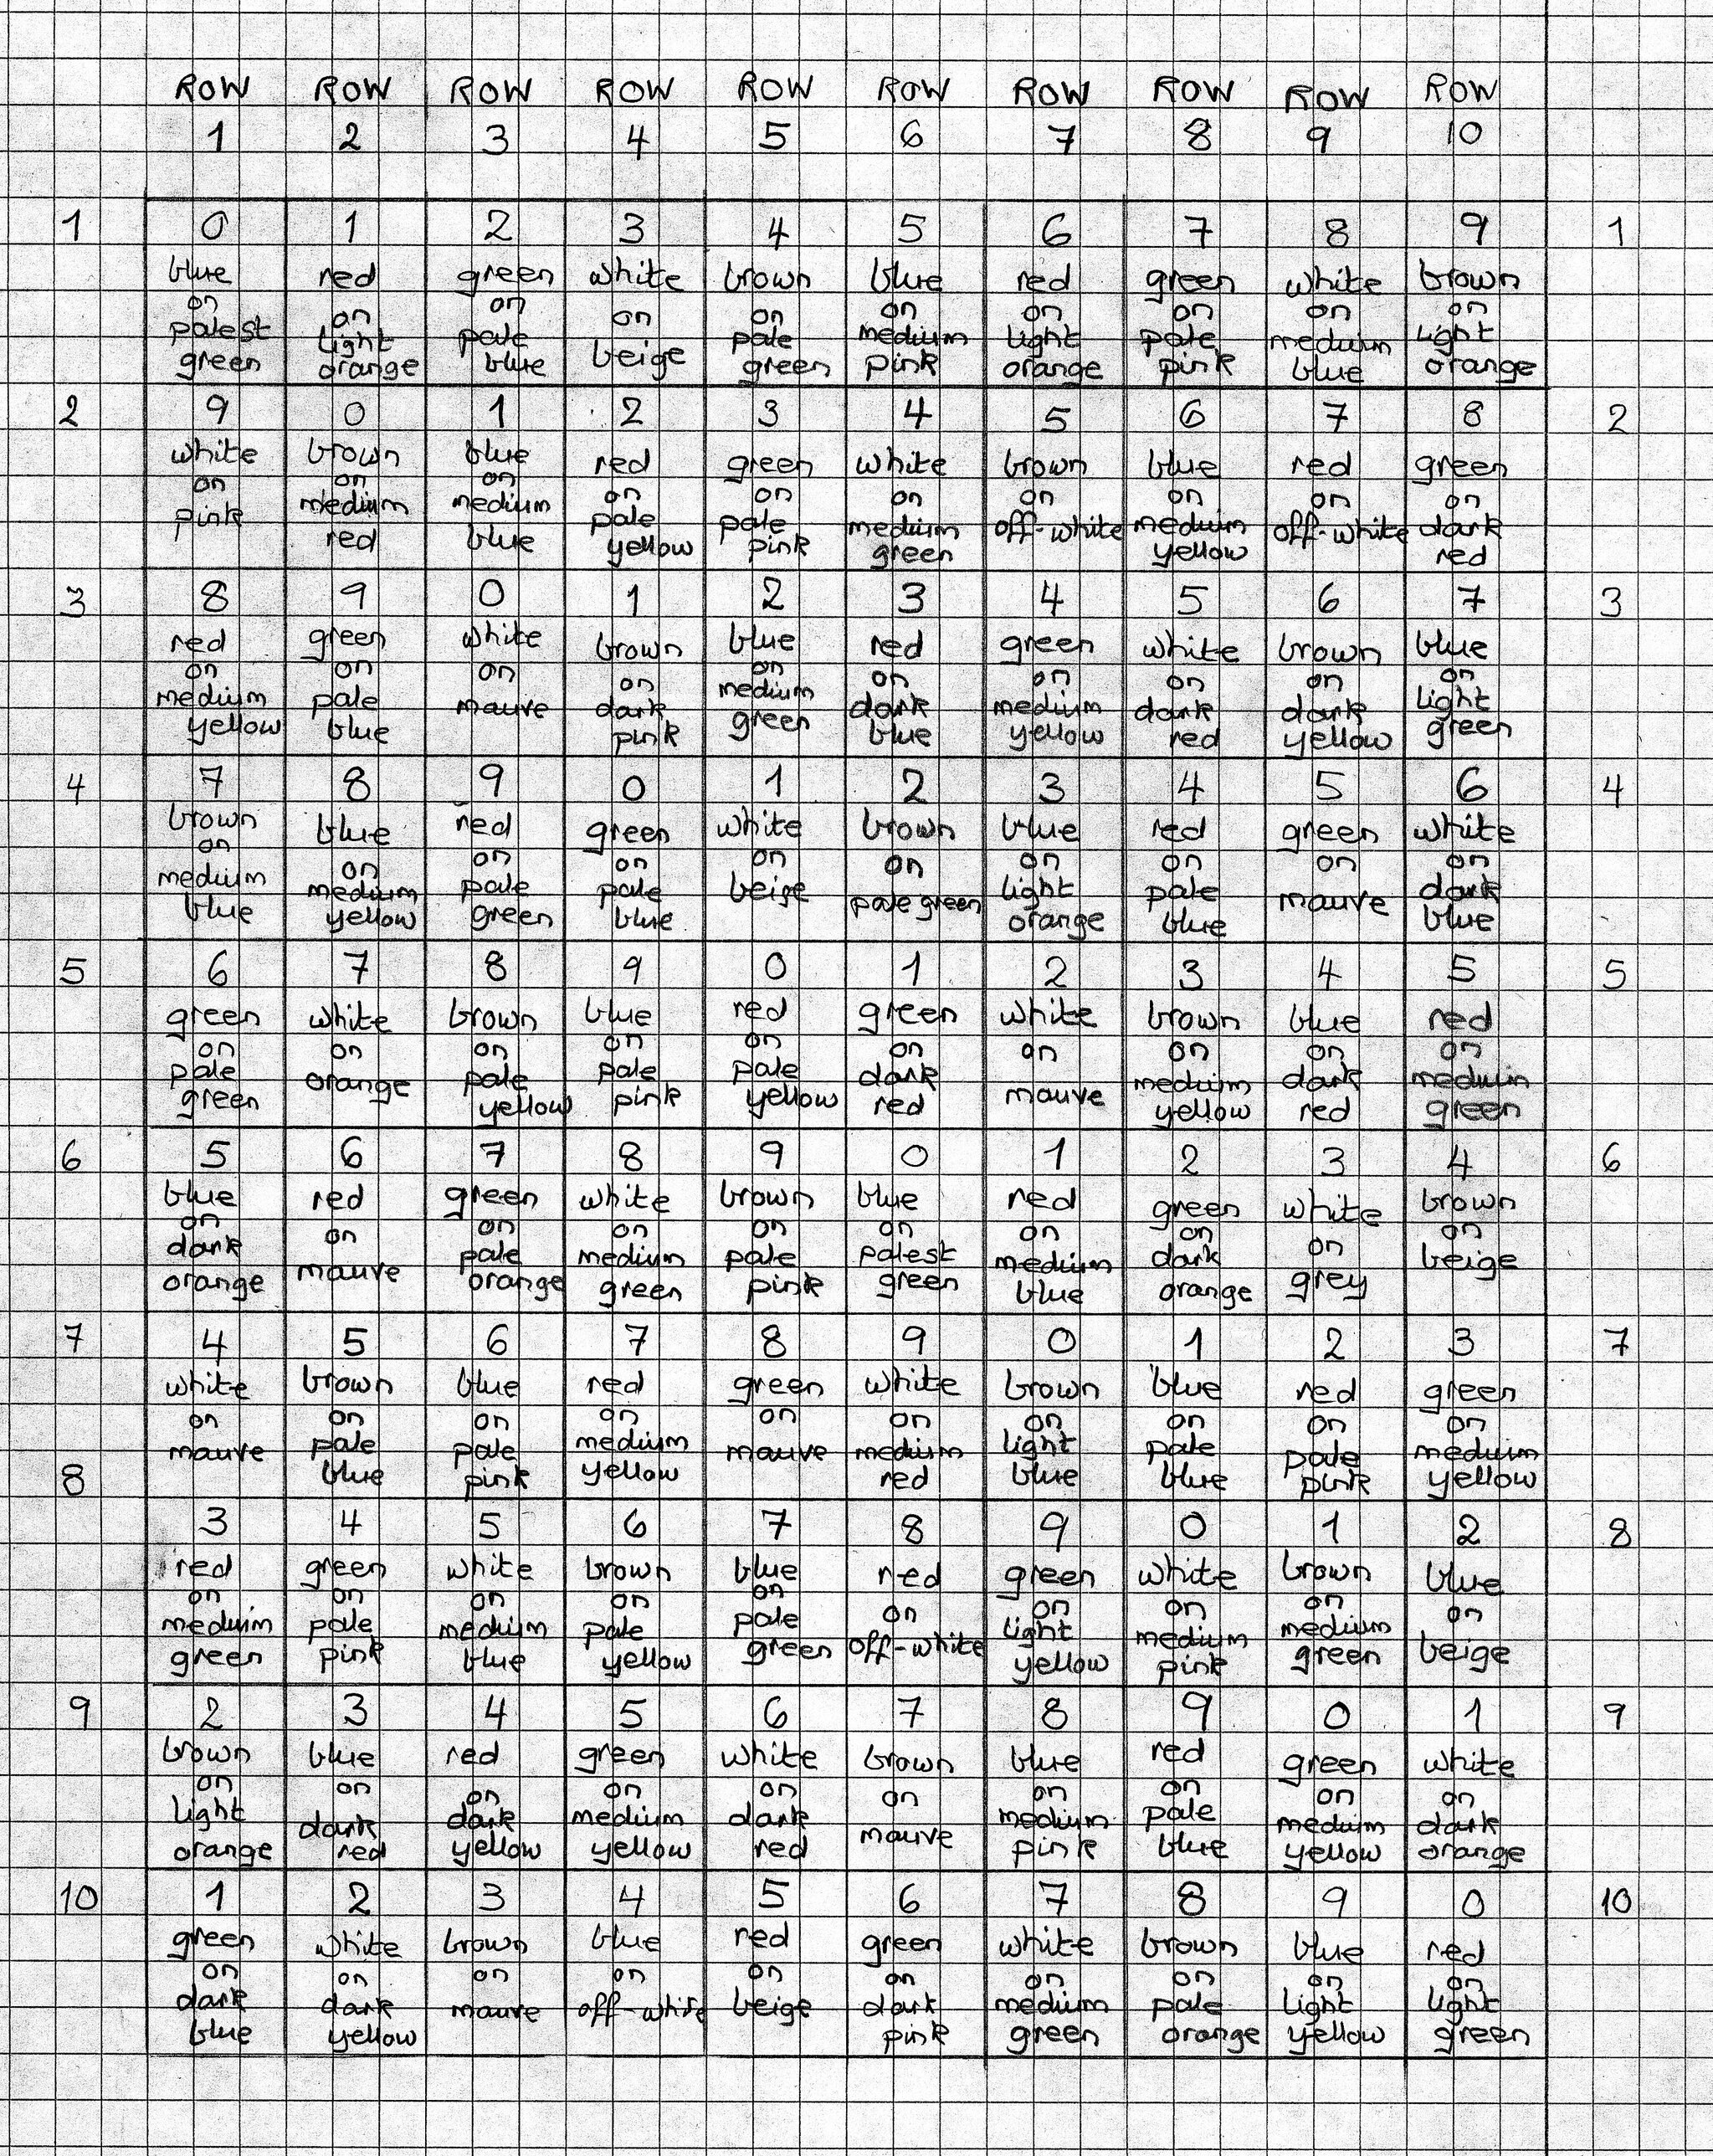 ROW ROW ROW ROW ROW ROW ROW ROW ROW ROW
1 2 3 4 5 6 7 8 9 10
1 0 1 2 3 4 5 6 7 8 9 1
blue red green white brown blue red green white brown
on on on on on on on on on on
palest light pale beige pale medium light pale medium light
green orange blue green pink orange pink blue orange
2 9 0 1 2 3 4 5 6 7 8 2
white brown blue red green white brown blue red green
on on on on on on on on on on
pink medium medium pale pale medium off-white medium off-white dark
red blue yellow pink green yellow red
3 8 9 0 1 2 3 4 5 6 7 3
red green white brown blue red green white brown blue
on on on on on on on on on on
medium pale mauve dark medium dark medium dark dark light
yellow blue pink green blue yellow red yellow green
4 7 8 9 0 1 2 3 4 5 6 4
brown blue red green white brown blue red green white
on on on on on on on on on on
medium medium pale pale beige pale green light pale mauve dark
blue yellow green blue orange blue blue
5 6 7 8 9 0 1 2 3 4 5 5
green white brown blue red green white brown blue red
on on on on on on on on on on
pale orange pale pale pale dark mauve medium dark medium
green yellow pink yellow red yellow red green
6 5 6 7 8 9 0 1 2 3 4 6
blue red green white brown blue red green white brown
on on on on on on on on on on
dark mauve pale medium pale palest medium dark grey beige
orange orange green pink green blue orange
7 4 5 6 7 8 9 0 1 2 3 7
white brown blue red green white brown blue red green
on on on on on on on on on on
mauve pale pale medium mauve medium light pale pale medium
8 blue pink yellow red blue blue pink yellow
3 4 5 6 7 8 9 0 1 2 8
red green white brown blue red green white brown blue
on on on on on on on on on on
medium pale medium pale pale off-white light medium medium beige
green pink blue yellow green yellow pink green
9 2 3 4 5 6 7 8 9 0 1 9
brown blue red green white brown blue red green white
on on on on on on on on on on
light dark dark medium dark mauve medium pale medium dark
orange red yellow yellow red pink blue yellow orange
10 1 2 3 4 5 6 7 8 9 0 10
green white brown blue red green white brown blue red
on on on on on on on on on on
dark dark mauve off-white beige dark medium pale light light
blue yellow pink green orange yellow green